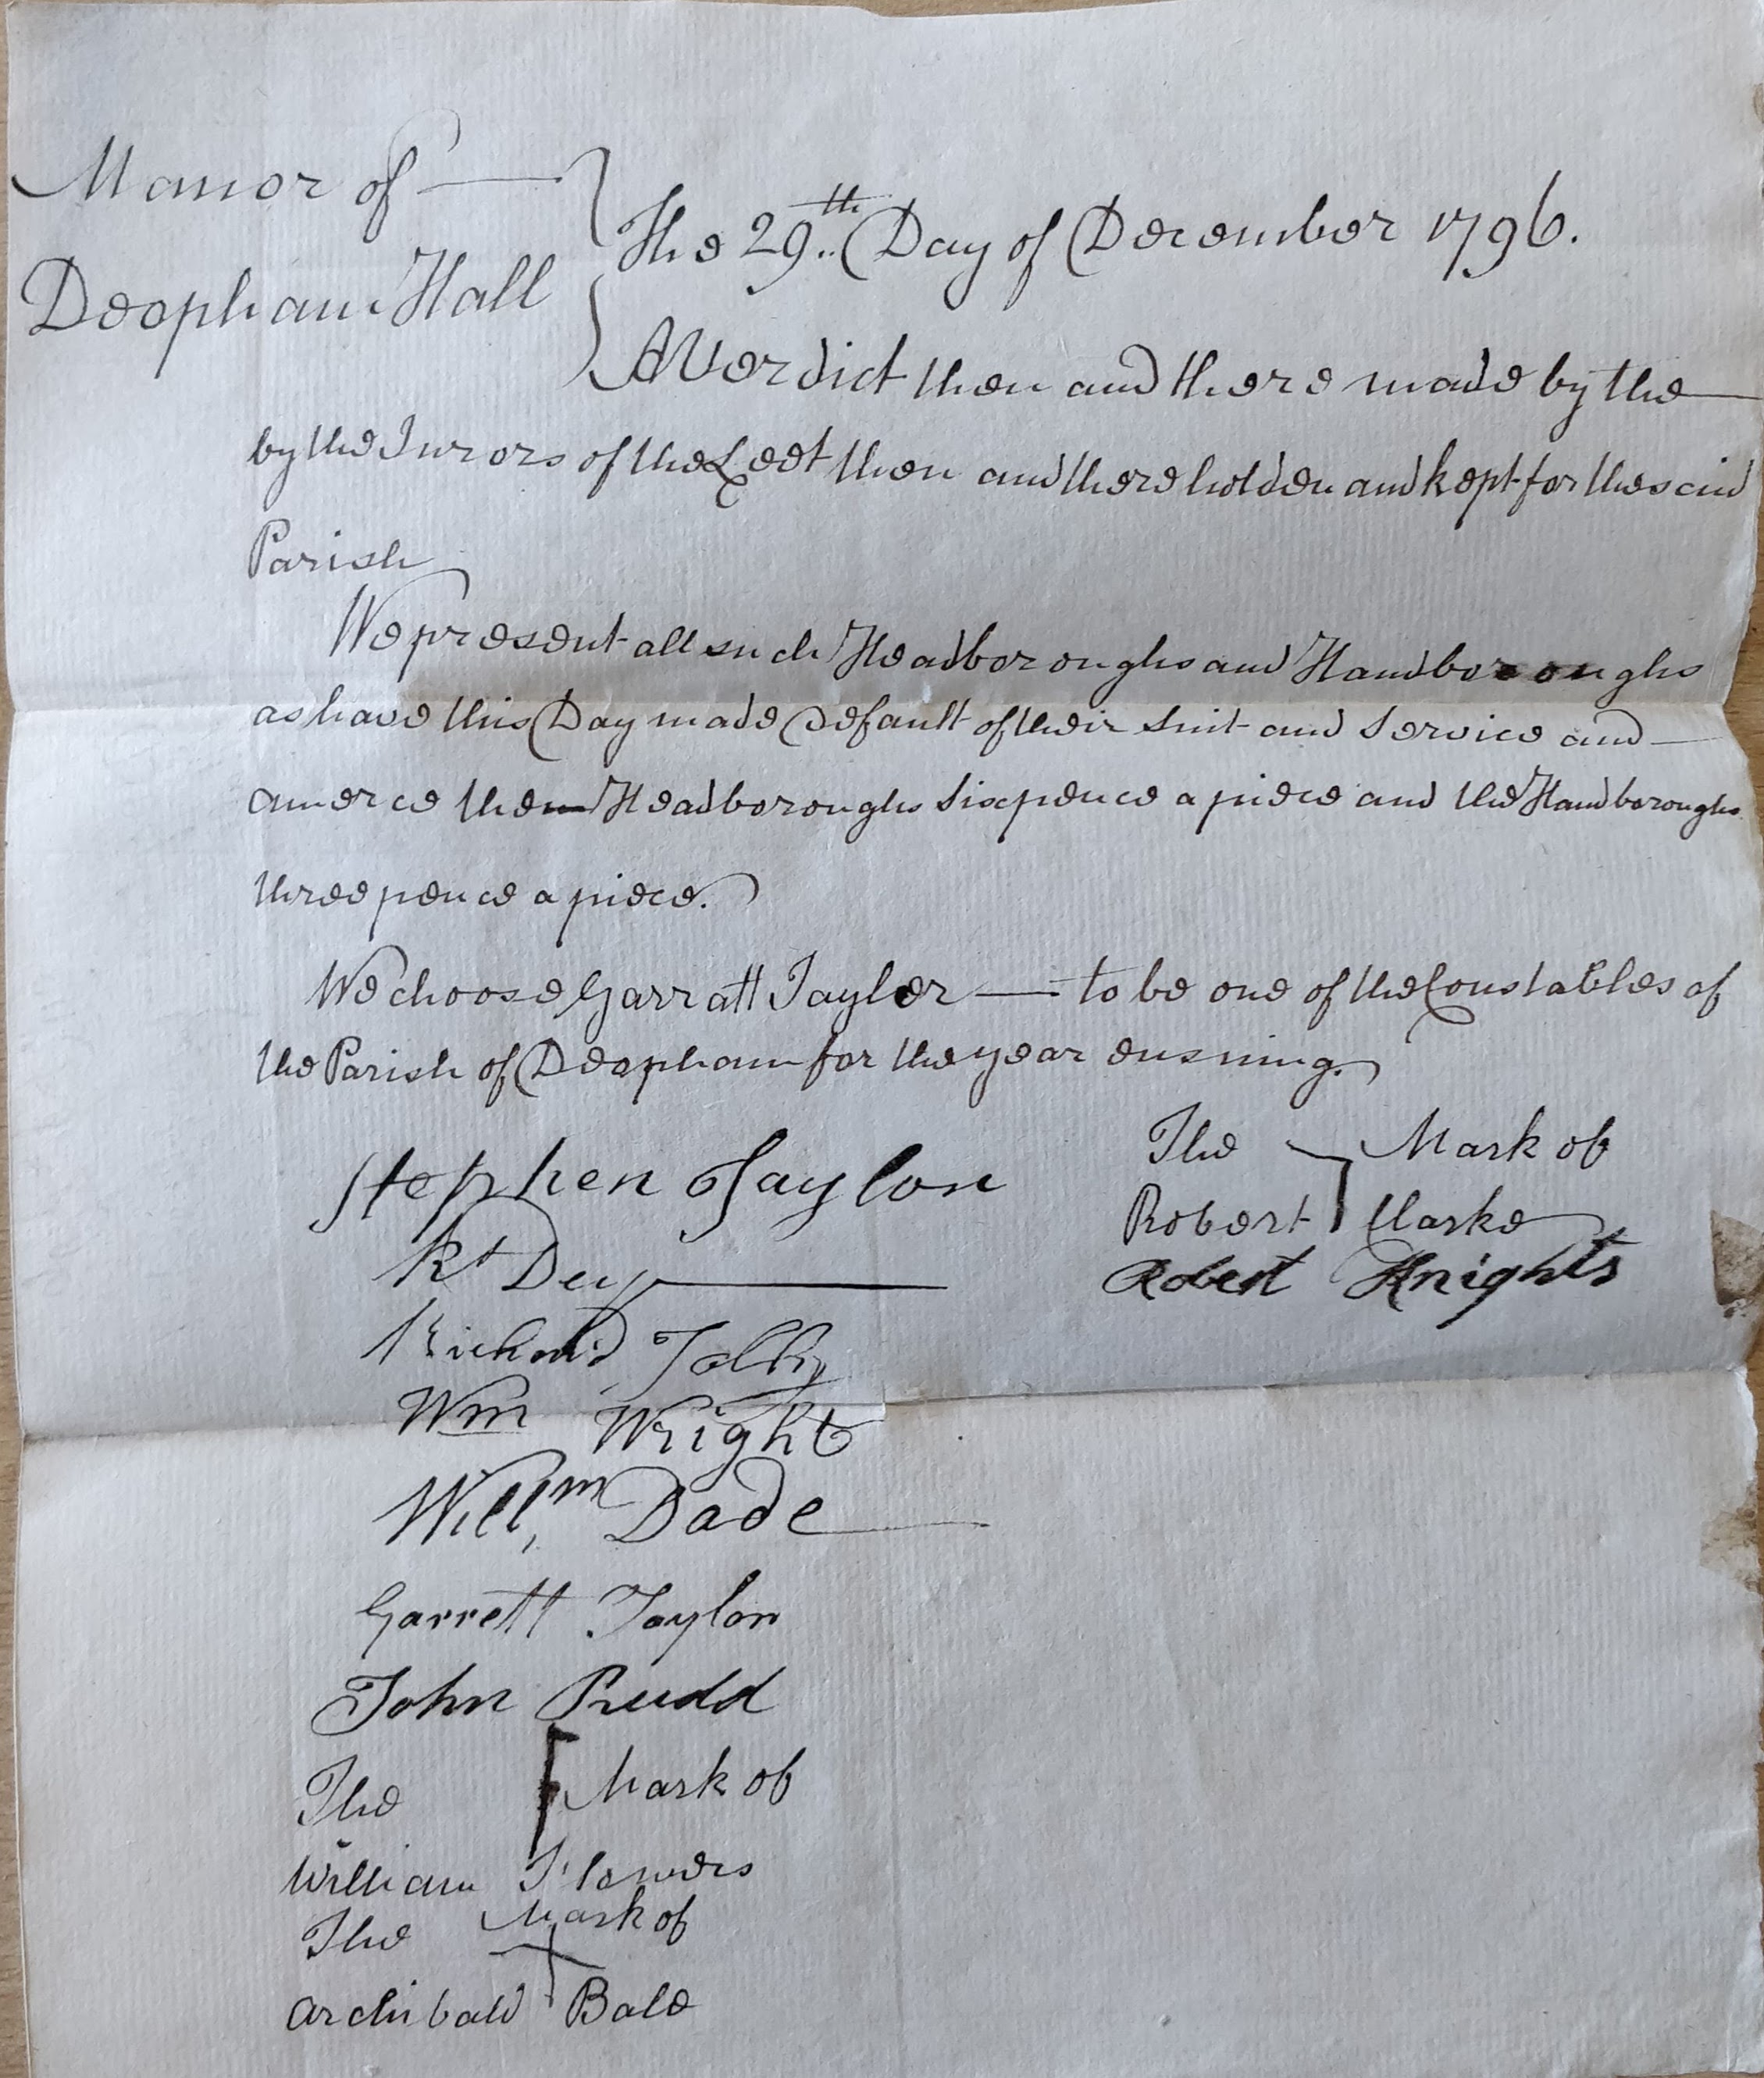 Manor of
Deopham Hall
The 29th Day of December 1796.
A Verdict then and there made by the
by the Jurors of the Leet then and there holden and kept for the said
Parish
We present all such Headboroughs and Handboroughs
as have this Day made Default of their Suit and Service and
amerce the Headboroughs Sixpence a piece and the Handboroughs
three pence a piece.
We choose Garratt Tayler to be one of the Constables of
the Parish of Deopham for the year ensuing.
Stephen Taylor
Rt Dey
Richard Tolly
Wm Wright
Willm Dade
Garrett Taylor
John Rudd
The Mark of
William Flowers
The Mark of
Archibald Bale
The Mark of
Robert Clarke
Robert Knights